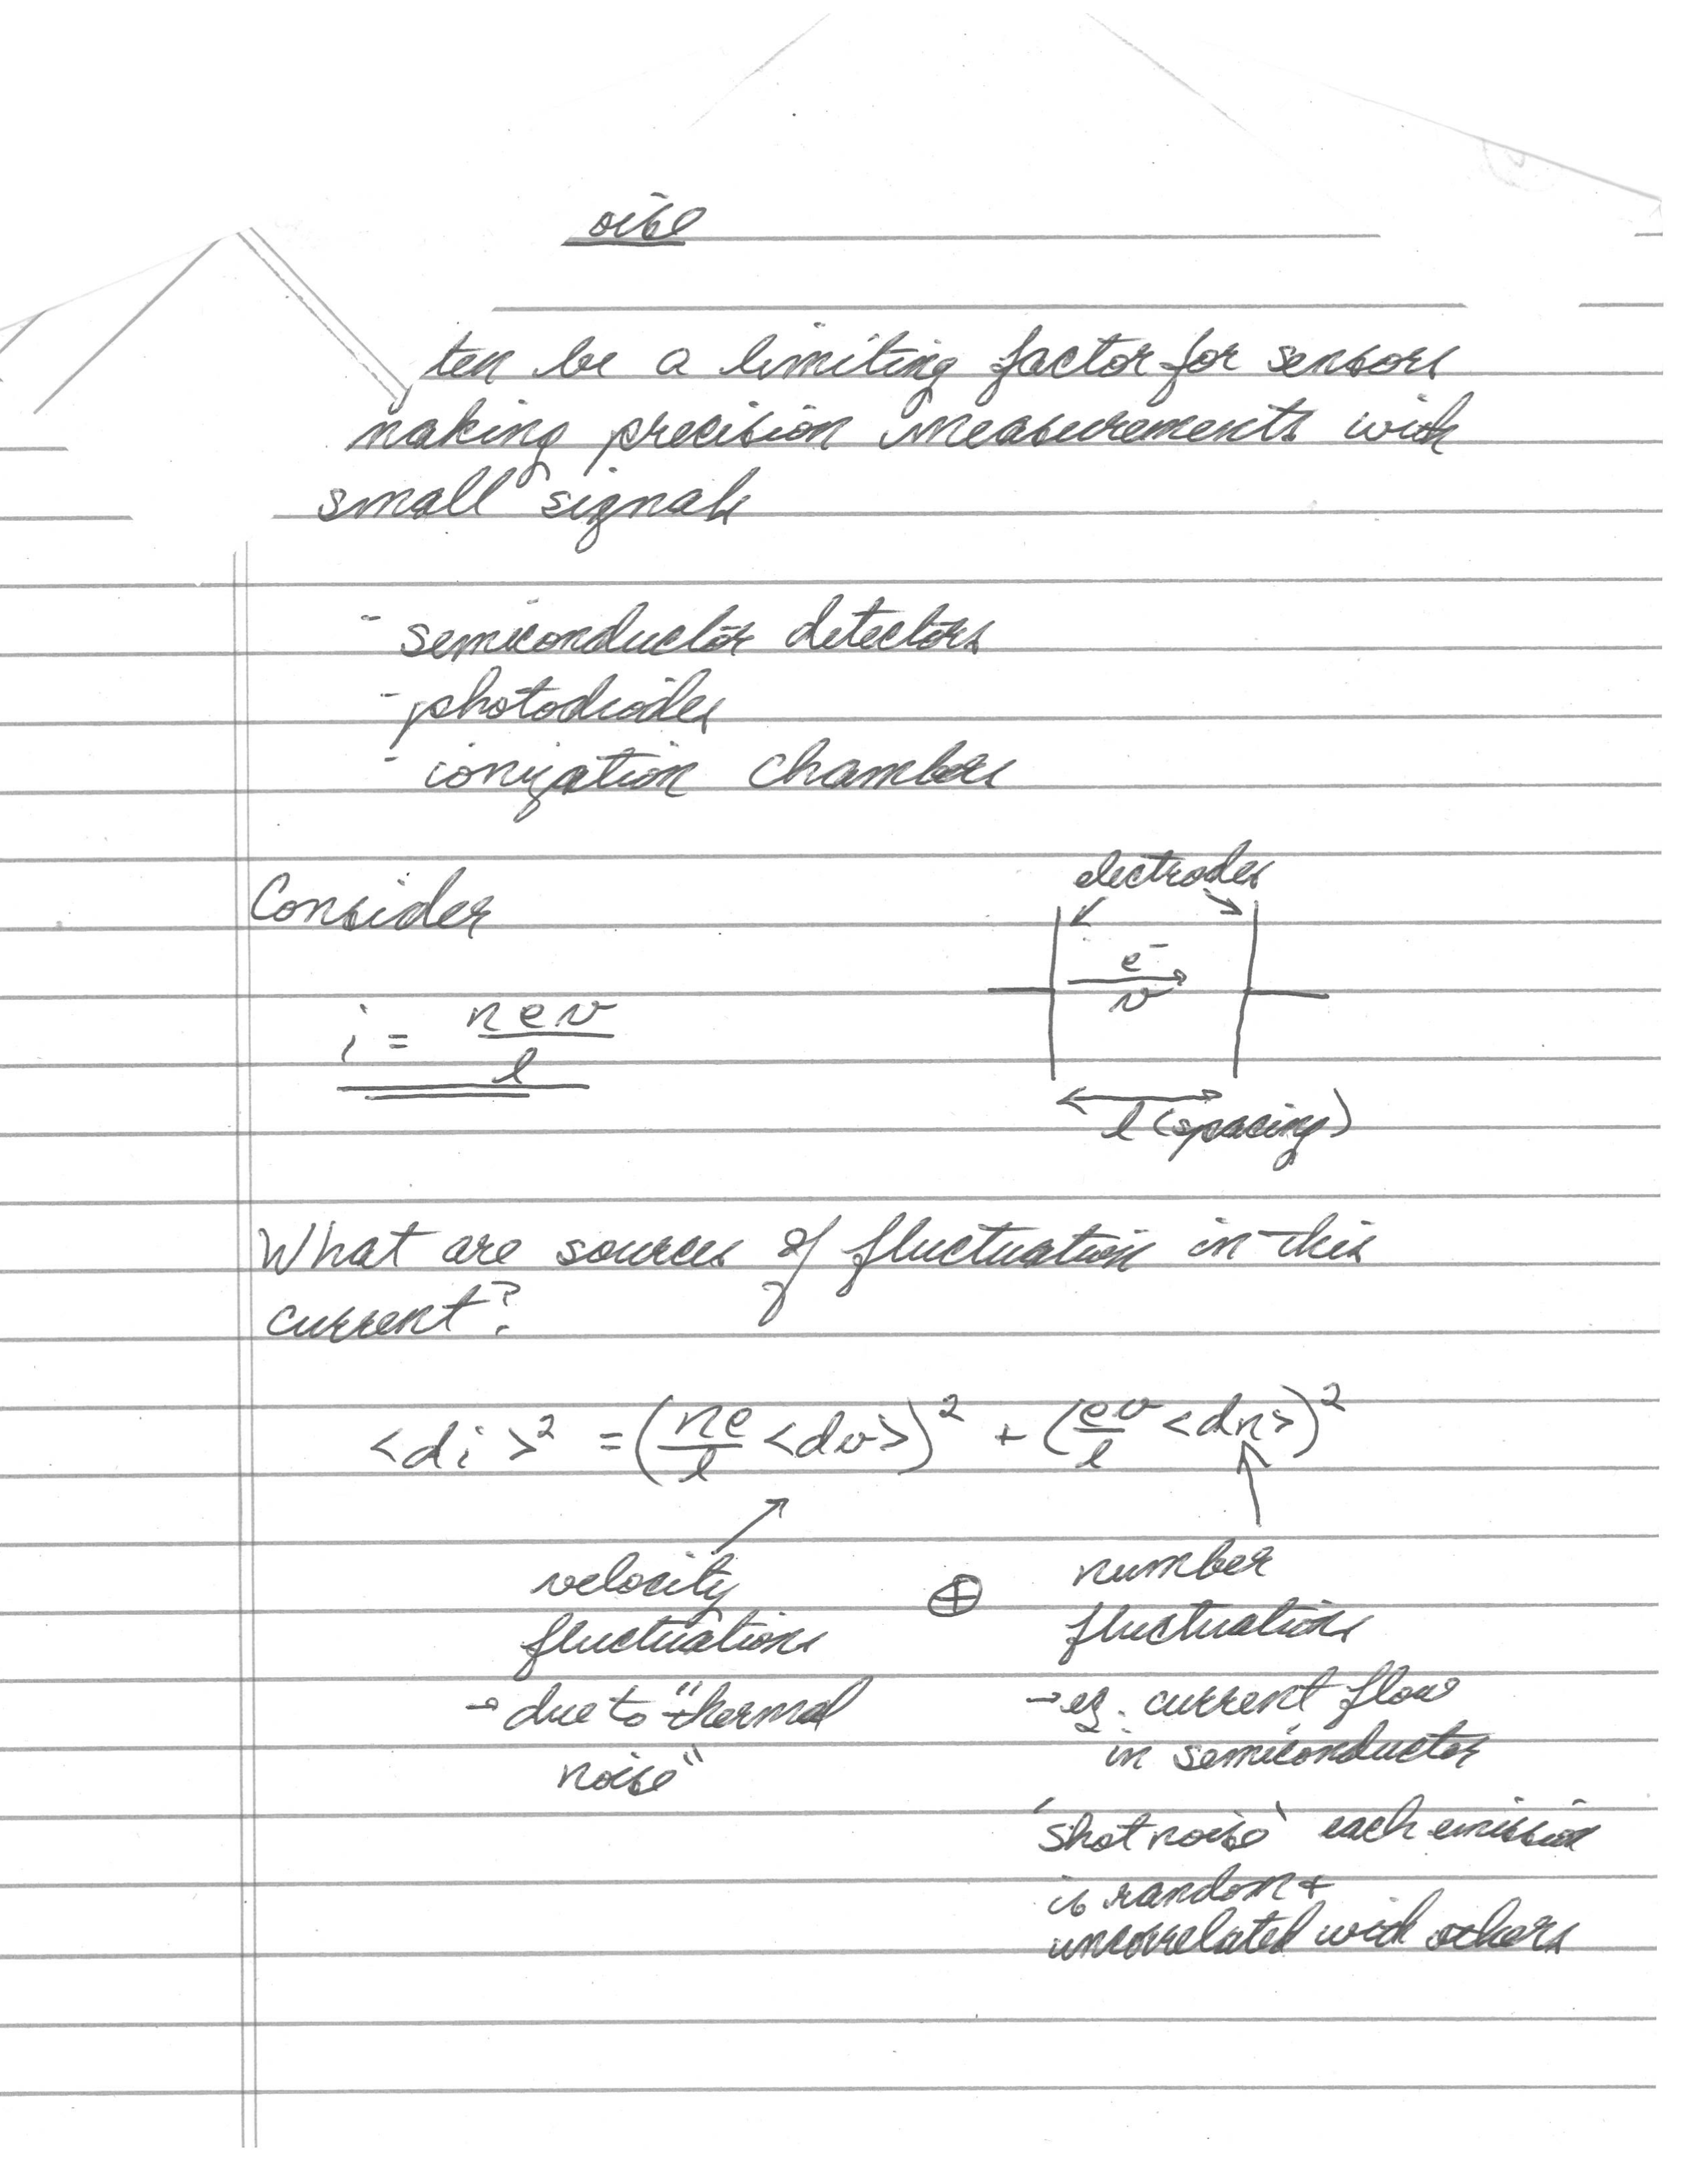 oise
ten be a limiting factor for sensors
making precision measurements with
small signals
- semiconductor detectors
- photodiodes
- ionization chambers
electrodes
Consider
e⁻
v
i = nev/l
l (spacing)
What are sources of fluctuation in this
current?
<di>² = (ne/l <dv>)² + (ev/l <dn>)²
velocity ⊕ number
fluctuations fluctuations
→ due to "thermal → eg. current flow
noise" in semiconductor
'shot noise' each emission
is random +
uncorrelated with others